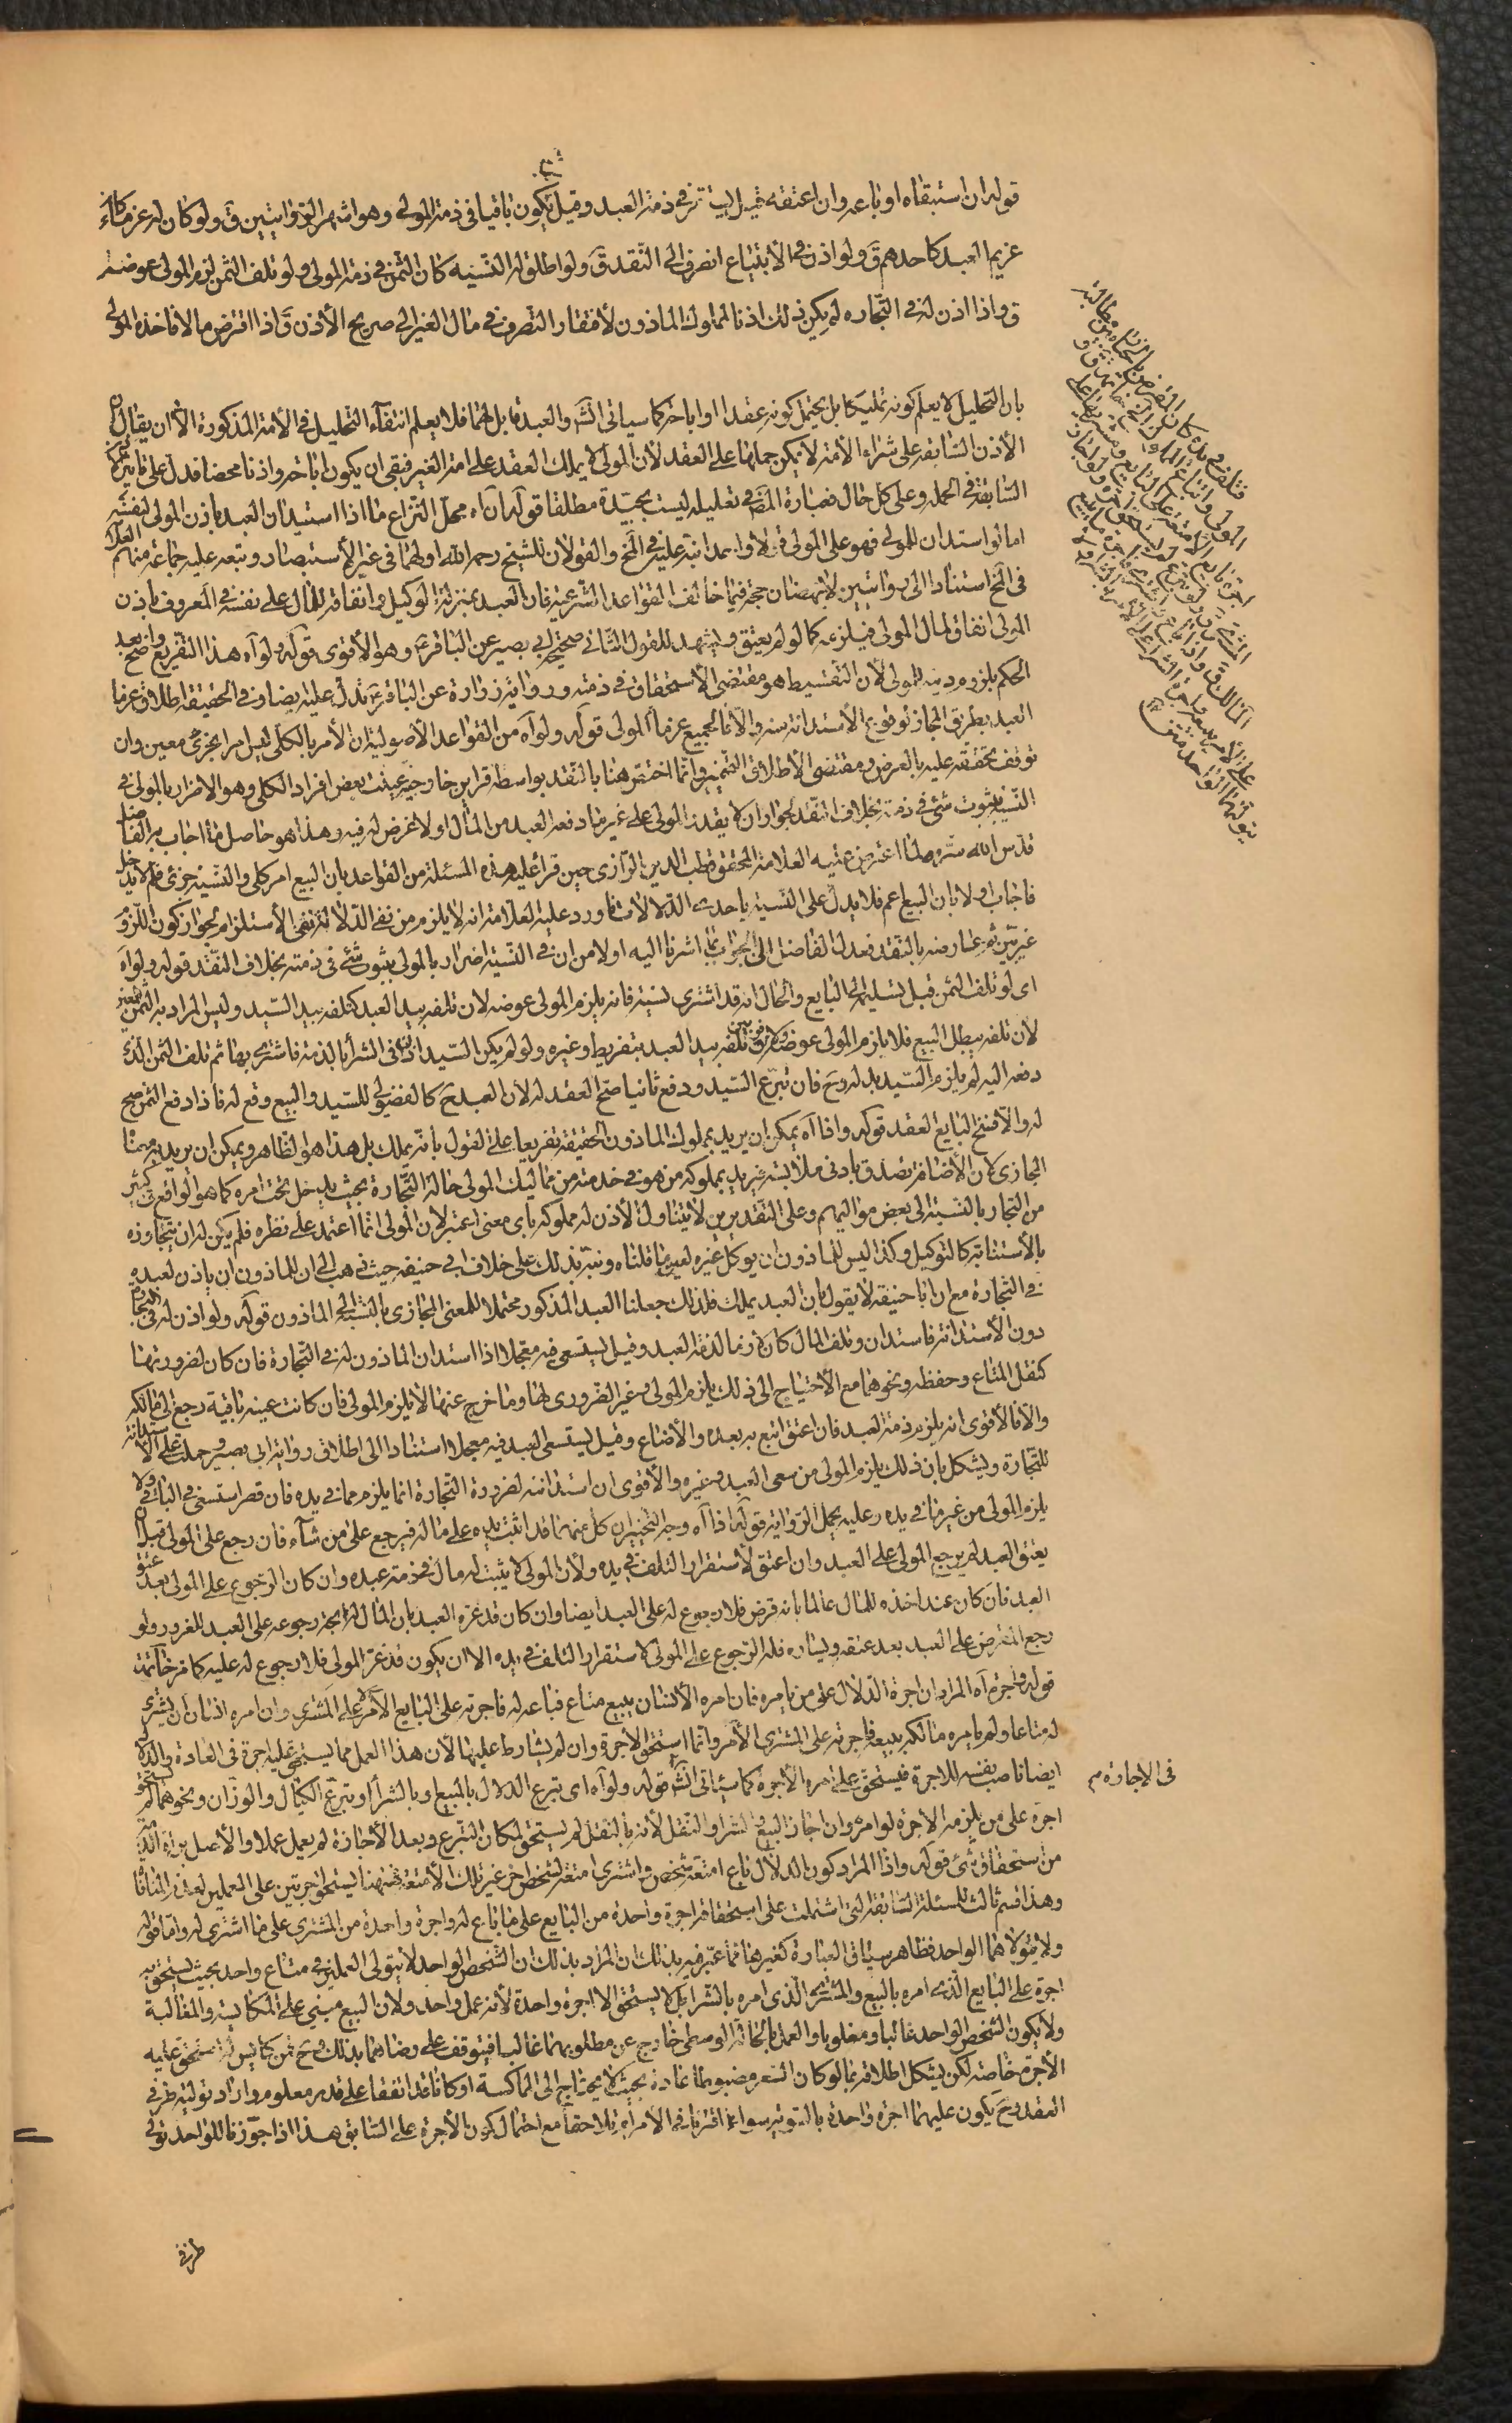 قوله ان استبقاه او باعه وان اعتقه قيل يستقر في ذمة العبد وقيل يكون باقيا في ذمة المولى وهو اشهر الروايتين ق ولو كان له غرماء كان
غريم العبد كاحدهم ق ولو اذن في الابتياع انصرف الى النقد ق ولو اطلق له النسيئة كان الثمن في ذمة المولى ولو تلف الثمن لزم المولى عوضه
ق واذا اذن له في التجارة لم يكن ذلك اذنا لمملوك الماذون لافتقار التصرف في مال الغير الى صريح الأذن ق اذا اقترض مالا فاخذه المولى
بان التحليل لا يعلم كونه تمليكا بل يحتمل كونه عقدا او اباحة كما سياتي انش والعبد قابل لهما فلا يعلم انتفاء التحليل في الأمة المذكورة الا ان يقال
الأذن السابقة على شراء الأمة لا يمكن حملها على العقد لأن المولى لا يملك العقد على امة الغير فبقي ان يكون اباحة واذنا محضا فدل على تاثيرها
السابقة في الجملة وعلى كل حال فعبارة المص في تعليله ليست بجيدة مطلقا قوله ان آه محل النزاع ما اذا استدان العبد باذن المولى لنفسه
اما لو استدان للمولى فهو على المولى قولا واحدا نبه عليه في الخ والقولان للشيخ رحمه الله اولهما في غير الأستبصار وتبعه عليه جماعة منهم العلامة
في الخ استنادا الى روايتين لا ينهضان حجة فيما خالف القواعد الشرعية فان العبد بمنزلة الوكيل وانفاقه للمال على نفسه في المعروف باذن
المولى انفاق لمال المولى فيلزمه كما لو لم يعتق ويشهد للقول الثاني صحيحة ابي بصير عن الباقر ع وهو الأقوى قوله ولو آه هذا التفريع واضح بعد
الحكم بلزوم دينه للمولى لأن التقسيط هو مقتضى الأستحقاق في ذمته ورواية زرارة عن الباقر ع تدل عليه ايضا وفي الحقيقة اطلاق غرما
العبد بطريق المجاز لوقوع الأستدانة منه والا فالجميع غرماء المولى قوله ولو آه من القواعد الأصولية ان الأمر بالكلي ليس امرا بجزئي معين وان
توقف تحققه عليه بالعرض ومقتضى الأطلاق التخيير وانما اختص هنا بالنقد بواسطة قراين خارجية عينت بعض افراد الكلي وهو الاضرار بالمولى في
النسيئة بثبوت شئ في ذمته بخلاف النقد لجواز ان لا يقدر المولى على غير ما دفعه العبد من المال او لا غرض له فيه وهذا هو حاصل ما اجاب به الفاضل
قدس الله سره لما اعترض عليه العلامة المحقق قطب الدين الرازي حين قرأ عليه هذه المسئلة من القواعد بان البيع امر كلي والنسيئة جزئي فلم لا يدخل
فاجاب اولا بان البيع اعم فلا يدل على النسيئة باحدى الدلالات فاورد عليه العلامة انه لا يلزم من نفي الدلالة نفي الأستلزام لجواز كون اللزوم
غير بين ثم عارضه بالنقد فعدل الفاضل الى الجواب بما اشرنا اليه اولا من ان في النسيئة اضرار بالمولى بثبوت شئ في ذمته بخلاف النقد قوله ولو آه
اى لو تلف الثمن قبل تسليمه الى البايع والحال انه قد اشترى نسيئة فانه يلزم المولى عوضه لان تلفه بيد العبد كتلفه بيد السيد وليس المراد به الثمن المعين
لان تلفه يبطل البيع فلا يلزم المولى عوضه ولا فرق بين تلفه بيد العبد بتفريط وغيره ولو لم يكن السيد اذن في الشرأ بالذمة فاشترى بها ثم تلف الثمن الذى
دفعه اليه لم يلزم السيد بدله وح فان تبرع السيد ودفع ثانيا صح العقد له لان العبد ح كالفضولي للسيد والبيع وقع له فاذا دفع الثمن صح
له والا فسخ البايع العقد قوله واذا آه يمكن ان يريد بمملوك الماذون الحقيقة تفريعا على القول بأنه يملك بل هذا هو الظاهر ويمكن ان يريد به مهنا
المجازي لان الأضافة تصدق بادنى ملابسة فيريد بمملوكه من هو في خدمته من مماليك المولى حالة التجارة بحيث يدخل تحت امره كما هو الواقع في كثير
من التجار بالنسبة الى بعض مواليهم وعلى التقديرين لا يتناول الأذن له مملوكه باى معنى اعتبر لان المولى انما اعتمد على نظره فلم يكن له ان يتجاوزه
بالأستنابة كالتوكيل وكذا ليس للماذون ان يوكل غيره لعين ما قلناه ونبه بذلك على خلاف ابي حنيفة حيث ذهب الى ان للماذون ان ياذن لعبده
في التجارة مع ان ابا حنيفة لا يقول بان العبد يملك فلذلك جعلنا العبد المذكور محتملا للمعنى المجازي بالنسبة الى الماذون قوله ولو اذن له في التجارة
دون الأستدانة فاستدان وتلف المال كان لازما لذمة العبد وقيل يستسعى فيه معجلا اذا استدان الماذون له في التجارة فان كان لضرورتها
كنقل المتاع وحفظه ونحوهما مع الأحتياج الى ذلك يلزم المولى وغير الضروري لها وما خرج عنها لا يلزم المولى فان كانت عينه باقية رجع الى مالكه
والا فالأقوى انه يلزم ذمة العبد فان اعتق اتبع به بعده والا ضاع وقيل يستسعى العبد فيه معجلا استنادا الى اطلاق رواية ابي بصير وحملت على الاستدانة
للتجارة ويشكل بان ذلك يلزم المولى من سعى العبد وغيره والأقوى ان استدانته لضرورة التجارة انما يلزم مما في يده فان قصر استسعي في الباقي ولا
يلزم المولى من غير ما في يده وعليه يحمل الرواية قوله اذا آه وجه التخيير ان كل منهما قد اثبت يده على ماله فيرجع على من شاء فان رجع على المولى قبل ان
يعتق العبد لم يرجع المولى على العبد وان اعتق لأستقرار التلف في يده ولأن المولى لا يثبت له مال في ذمة عبده وان كان الرجوع على المولى بعد عتق
العبد فان كان عند اخذه للمال عالما بانه قرض فلا رجوع له على العبد ايضا وان كان قد غره العبد بان المال له اتجه رجوعه على العبد المغرور ولو
رجع المقرض على العبد بعد عتقه ويساره فله الرجوع على المولى لاستقرار التلف في يده الا ان يكون قد غر المولى فلا رجوع له عليه كما مر خاتمة
قوله واجرة آه المراد ان اجرة الدلال على من يامره فان امره الأنسان ببيع متاع فباعه له فاجرته على البايع الآمر لا على المشتري وان امره انسان ان يشتري
له متاعا ولم يامره مالكه ببيعه فاجرته على المشتري الآمر وانما استحق الأجرة وان لم يشارطا عليها لأن هذا العمل مما يستحق عليه اجرة في العادة والدلال
ايضا ناصب نفسه للاجرة فيستحق على امره الأجرة كما سيأتي انش قوله ولو آه اى تبرع الدلال بالبيع او بالشرأ او تبرع الكيال والوزان ونحوهما لم يستحق
اجرة على من يلزمه الأجرة لو امر وان اجاز البيع والشرا والنقل لأنه بالنقل لم يستحق لمكان التبرع وبعد الأجازة لم يعمل عملا والأصل برائة الذمة
من استحقاق شئ قوله واذا المراد كون الدلال باع امتعة شخص واشترى امتعة لشخص اخر غير تلك الأمتعة فهنا يستحق اجرتين على العملين لعدم المنافاة
وهذا قسم ثالث للمسئلة السابقة التي اشتملت على استحقاقه اجرة واحدة من البايع على ما باع له واجرة واحدة من المشتري على ما اشترى له واما قوله
ولا يتولاهما الواحد فظاهر سياق العبارة كغيرها مما عبر فيه بذلك ان المراد بذلك ان الشخص الواحد لا يتولى العملين في متاع واحد بحيث يستحق به
اجرة على البايع الذى امره بالبيع والمشترى الذى امره بالشرا بل لا يستحق الا اجرة واحدة لأنه عمل واحد ولان البيع مبني على المكايسة والمغالبة
ولا يكون الشخص الواحد غالبا ومغلوبا والعمل بالحالة الوسطى خارج عن مطلوبهما غالبا فيتوقف على رضاهما بذلك وح فمن يكايس له استحق عليه
الأجرة خاصة لكن يشكل اطلاقه بما لو كان السعر مضبوطا عادة بحيث لا يحتاج الى المماكسة او كانا قد اتفقا على قدر معلوم وارادا توليته طرفي
العقد وح يكون عليهما اجرة واحدة بالسوية سواء اقترنا في الأمر ام تلاحقا مع احتمال كون الأجرة على السابق هذا اذا جوزنا للواحد تولى
في الاجارة م
طرفي